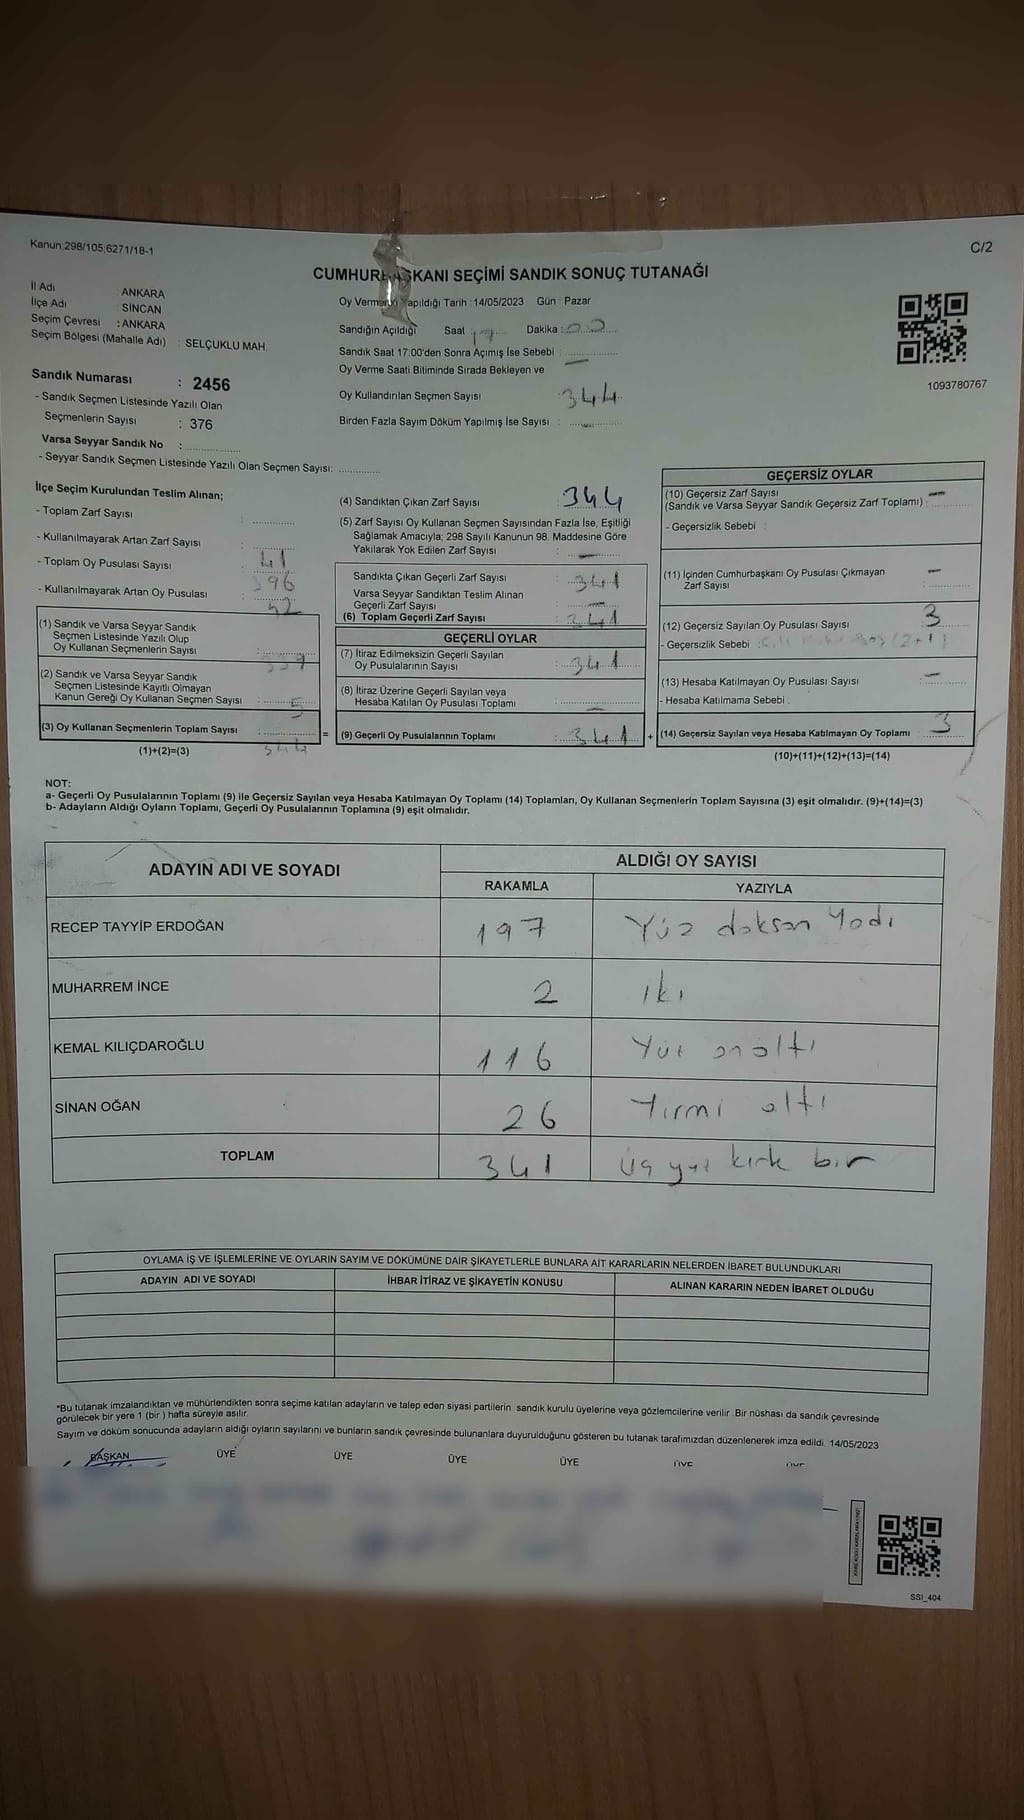 Kanun;298/105;6271/18-1
C/2
CUMHURBAŞKANI SEÇİMİ SANDIK SONUÇ TUTANAĞI
İl Adı : ANKARA
İlçe Adı : SİNCAN
Seçim Çevresi : ANKARA
Seçim Bölgesi (Mahalle Adı) : SELÇUKLU MAH.
Oy Vermenin Yapıldığı Tarih : 14/05/2023 Gün : Pazar
Sandığın Açıldığı Saat 17 Dakika : 00
Sandık Saat 17:00'den Sonra Açımış İse Sebebi :
Oy Verme Saati Bitiminde Sırada Bekleyen ve
Oy Kullandırılan Seçmen Sayısı : 344
Birden Fazla Sayım Döküm Yapılmış İse Sayısı :
1093780767
Sandık Numarası : 2456
- Sandık Seçmen Listesinde Yazılı Olan
Seçmenlerin Sayısı : 376
Varsa Seyyar Sandık No :
- Seyyar Sandık Seçmen Listesinde Yazılı Olan Seçmen Sayısı:
İlçe Seçim Kurulundan Teslim Alınan;
- Toplam Zarf Sayısı :
- Kullanılmayarak Artan Zarf Sayısı : 41
- Toplam Oy Pusulası Sayısı : 396
- Kullanılmayarak Artan Oy Pusulası : 52
(1) Sandık ve Varsa Seyyar Sandık
Seçmen Listesinde Yazılı Olup
Oy Kullanan Seçmenlerin Sayısı : 339
(2) Sandık ve Varsa Seyyar Sandık
Seçmen Listesinde Kayıtlı Olmayan
Kanun Gereği Oy Kullanan Seçmen Sayısı : 5
(3) Oy Kullanan Seçmenlerin Toplam Sayısı : 344
(1)+(2)=(3)
(4) Sandıktan Çıkan Zarf Sayısı : 344
(5) Zarf Sayısı Oy Kullanan Seçmen Sayısından Fazla İse, Eşitliği
Sağlamak Amacıyla; 298 Sayılı Kanunun 98. Maddesine Göre
Yakılarak Yok Edilen Zarf Sayısı : —
Sandıkta Çıkan Geçerli Zarf Sayısı : 341
Varsa Seyyar Sandıktan Teslim Alınan
Geçerli Zarf Sayısı : —
(6) Toplam Geçerli Zarf Sayısı : 341
GEÇERLİ OYLAR
(7) İtiraz Edilmeksizin Geçerli Sayılan
Oy Pusulalarının Sayısı : 341
(8) İtiraz Üzerine Geçerli Sayılan veya
Hesaba Katılan Oy Pusulası Toplamı : —
= (9) Geçerli Oy Pusulalarının Toplamı : 341 +
GEÇERSİZ OYLAR
(10) Geçersiz Zarf Sayısı —
(Sandık ve Varsa Seyyar Sandık Geçersiz Zarf Toplamı) :
- Geçersizlik Sebebi :
(11) İçinden Cumhurbaşkanı Oy Pusulası Çıkmayan —
Zarf Sayısı :
(12) Geçersiz Sayılan Oy Pusulası Sayısı : 3
- Geçersizlik Sebebi : (2+1)
(13) Hesaba Katılmayan Oy Pusulası Sayısı : —
- Hesaba Katılmama Sebebi :
(14) Geçersiz Sayılan veya Hesaba Katılmayan Oy Toplamı : 3
(10)+(11)+(12)+(13)=(14)
NOT:
a- Geçerli Oy Pusulalarının Toplamı (9) ile Geçersiz Sayılan veya Hesaba Katılmayan Oy Toplamı (14) Toplamları, Oy Kullanan Seçmenlerin Toplam Sayısına (3) eşit olmalıdır. (9)+(14)=(3)
b- Adayların Aldığı Oyların Toplamı, Geçerli Oy Pusulalarının Toplamına (9) eşit olmalıdır.
ADAYIN ADI VE SOYADI ALDIĞI OY SAYISI
RAKAMLA YAZIYLA
RECEP TAYYİP ERDOĞAN 197 Yüz doksan Yedi
MUHARREM İNCE 2 iki
KEMAL KILIÇDAROĞLU 116 Yüz onaltı
SİNAN OĞAN 26 Yirmi altı
TOPLAM 341 üç yüz kırk bir
OYLAMA İŞ VE İŞLEMLERİNE VE OYLARIN SAYIM VE DÖKÜMÜNE DAİR ŞİKAYETLERLE BUNLARA AİT KARARLARIN NELERDEN İBARET BULUNDUKLARI
ADAYIN ADI VE SOYADI İHBAR İTİRAZ VE ŞİKAYETİN KONUSU ALINAN KARARIN NEDEN İBARET OLDUĞU
*Bu tutanak imzalandıktan ve mühürlendikten sonra seçime katılan adayların ve talep eden siyasi partilerin sandık kurulu üyelerine veya gözlemcilerine verilir. Bir nüshası da sandık çevresinde
görülecek bir yere 1 (bir ) hafta süreyle asılır.
Sayım ve döküm sonucunda adayların aldığı oyların sayılarını ve bunların sandık çevresinde bulunanlara duyurulduğunu gösteren bu tutanak tarafımızdan düzenlenerek imza edildi. 14/05/2023
BAŞKAN ÜYE ÜYE ÜYE ÜYE ÜYE ÜYE
SSI_404